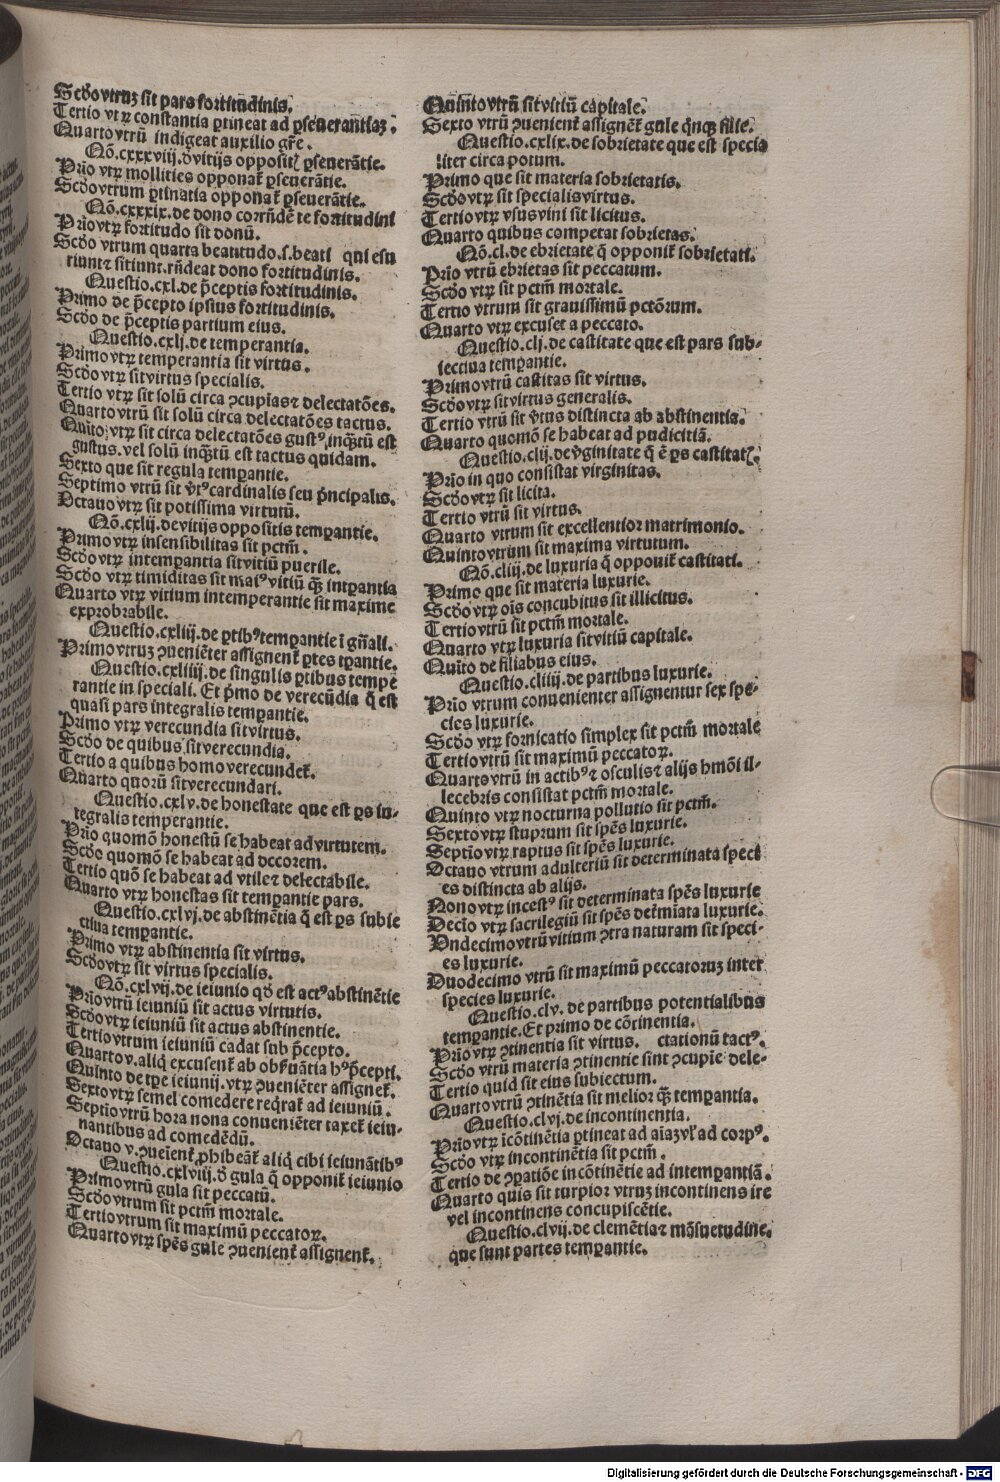 Scd̄o vtruꝫ sit pars fortitudinis.
Tertio vtꝝ constantia ꝑtineat ad ꝑseuerantiaꝫ.
Quarto vtrū indigeat auxilio gr̄e.
Qō.cxxxviij.d̄ vitijs oppositꝭ ꝑseuerātie.
Prīo vtꝝ mollities opponat̄ ꝑseuerātie.
Scd̄o vtrum ꝑtinatia opponat̄ ꝑseuerātie.
Qō.cxxxix.de dono corrn̄dēte fortitudini
Prīo vtꝝ fortitudo sit donū.
Scd̄o vtrum quarta beatitudo.s.beati qui esu
riunt⁊ sitiunt.rn̄deat dono fortitudinis.
Questio.cxl.de p̄ceptis fortitudinis.
Primo de p̄cepto ipsius fortitudinis.
Scd̄o de p̄ceptis partium eius.
Questio.cxlj.de temperantia.
Primo vtꝝ temperantia sit virtus.
Scd̄o vtꝝ sit virtus specialis.
Tertio vtꝝ sit solū circa ꝯcupias⁊ delectatōes.
Quarto vtrū sit solū circa delectatōes tactus.
Quīto vtꝝ sit circa delectatōes gustꝰ.inqꝫtū est
gustus.vel solū inqꝫtū est tactus quidam.
Sexto que sit regula temꝑantie.
Septimo vtrū sit v̄tꝰ cardinalis seu p̄ncipalis.
Octauo vtꝝ sit potissima virtutū.
Qō.cxlij.de vitijs oppositis temꝑantie.
Primo vtꝝ insensibilitas sit pctm̄.
Scd̄o vtꝝ intemꝑantia sit vitiū puerile.
Scd̄o vtꝝ timiditas sit maiꝰ vitiū qꝫ intꝑantia
Quarto vtꝝ vitium intemperantie sit maxime
exprobrabile.
Questio.cxliij.de ꝑtibꝰ temꝑantie ī gn̄ali.
Primo vtruꝫ ꝯueniēter assignent̄ ꝑtes tꝑantie.
Questio.cxliiij.de singulis ꝑtibus tempe
rantie in speciali. Et p̄mo de verecūdia q̄ est
quasi pars integralis temꝑantie.
Primo vtꝝ verecundia sit virtus.
Scd̄o de quibus sit verecundia.
Tertio a quibus homo verecundet̄.
Quarto quorū sit verecundari.
Questio.cxlv.de honestate que est ꝑs in-
tegralis temperantie.
Prīo quomō honestū se habeat ad virtutem.
Scd̄o quomō se habeat ad decorem.
Tertio quō se habeat ad vtile⁊ delectabile.
Quarto vtꝝ honestas sit temꝑantie pars.
Questio.cxlvj.de abstinētia q̄ est ꝑs subie
ctiua temꝑantie.
Primo vtꝝ abstinentia sit virtus.
Scd̄o vtꝝ sit virtus specialis.
Qō.cxlvij.de ieiunio qd̄ est actꝰ abstinētie
Prīo vtrū ieiuniū sit actus virtutis.
Scd̄o vtꝝ ieiuniū sit actus abstinentie.
Tertio vtrum ieiuniū cadat sub p̄cepto.
Quarto v.aliq̄ excusent̄ ab obs̄uātia hꝰ p̄cepti.
Quinto de tꝑe ieiunij.vtꝝ ꝯueniēter assignet̄.
Sexto vtꝝ semel comedere reqrat̄ ad ieiuniū.
Septīo vtrū hora nona conueniēter taxet̄ ieiu-
nantibus ad comedēdū.
Octauo v.ꝯueīent̄ ꝓhibeāt̄ aliq̄ cibi ieiunātibꝰ
Questio.cxlviij.d̄ gula q̄ opponit̄ ieiunio
Primo vtrū gula sit peccatū.
Scd̄o vtrum sit pctm̄ mortale.
Tertio vtrum sit maximū peccatoꝝ.
Quarto vtꝝ spēs gule ꝯuenient̄ assignent̄.
Quinto vtrū sit vitiū capitale.
Sexto vtrū ꝯuenient̄ assignēt̄ gule q̄nqꝫ filie.
Questio.cxlix.de sobrietate que est specia
liter circa potum.
Primo que sit materia sobrietatis.
Scd̄o vtꝝ sit specialis virtus.
Tertio vtꝝ vsus vini sit licitus.
Quarto quibus competat sobrietas.
Qō.cl.de ebrietate q̄ opponit̄ sobrietati.
Prīo vtrū ebrietas sit peccatum.
Scd̄o vtꝝ sit pctm̄ mortale.
Tertio vtrum sit grauissimū pctōrum.
Quarto vtꝝ excuset a peccato.
Questio.clj.de castitate que est pars sub-
iectiua temꝑantie.
Primo vtrū castitas sit virtus.
Scd̄o vtꝝ sit virtus generalis.
Tertio vtrū sit v̄tus distincta ab abstinentia.
Quarto quomō se habeat ad pudicitiā.
Questio.clij.de v̄ginitate q̄ ē ꝑs castitatꝭ.
Prīo in quo consistat virginitas.
Scd̄o vtꝝ sit licita.
Tertio vtrū sit virtus.
Quarto vtrum sit excellentior matrimonio.
Quinto vtrum sit maxima virtutum.
Qō.cliij.de luxuria q̄ opponit̄ castitati.
Primo que sit materia luxurie.
Scd̄o vtꝝ oīs concubitus sit illicitus.
Tertio vtrū sit pctm̄ mortale.
Quarto vtꝝ luxuria sit vitiū capitale.
Quīto de filiabus eius.
Questio.cliiij.de partibus luxurie.
Prīo vtrum conuenienter assignentur sex spe-
cies luxurie.
Scd̄o vtꝝ fornicatio simplex sit pctm̄ mortale
Tertio vtrū sit maximū peccatoꝝ.
Quarto vtrū in actibꝰ⁊ osculis⁊ alijs hmōi il-
lecebris consistat pctm̄ mortale.
Quinto vtꝝ nocturna pollutio sit pctm̄.
Sexto vtꝝ stuprum sit spēs luxurie.
Septīo vtꝝ raptus sit spēs luxurie.
Octauo vtrum adulteriū sit determinata speci
es distincta ab alijs.
Nono vtꝝ incestꝰ sit determinata spēs luxurie
Decīo vtꝝ sacrilegiū sit spēs det̄miata luxurie.
Vndecimo vtrū vitium ꝯtra naturam sit speci-
es luxurie.
Duodecimo vtrū sit maximū peccatoruꝫ inter
species luxurie.
Questio.clv. de partibus potentialibus
temꝑantie.Et primo de cōtinentia.
Prīo vtꝝ ꝯtinentia sit virtus. ctationū tactꝰ.
Scd̄o vtrū materia ꝯtinentie sint ꝯcupīe dele-
Tertio quid sit eius subiectum.
Quarto vtrū ꝯtinētia sit melior qꝫ temꝑantia.
Questio.clvj.de incontinentia.
Prīo vtꝝ īcōtinētia ꝑtineat ad aīaꝫ vl̄ ad corpꝰ.
Scd̄o vtꝝ incontinētia sit pctm̄.
Tertio de ꝯꝑatiōe incōtinētie ad intemꝑantiā.
Quarto quis sit turpior vtruꝫ incontinens ire
vel incontinens concupiscētie.
Questio.clvij.de clemētia⁊ māsuetudine.
que sunt partes temꝑantie.
Digitalisierung gefördert durch die Deutsche Forschungsgemeinschaft - DFG